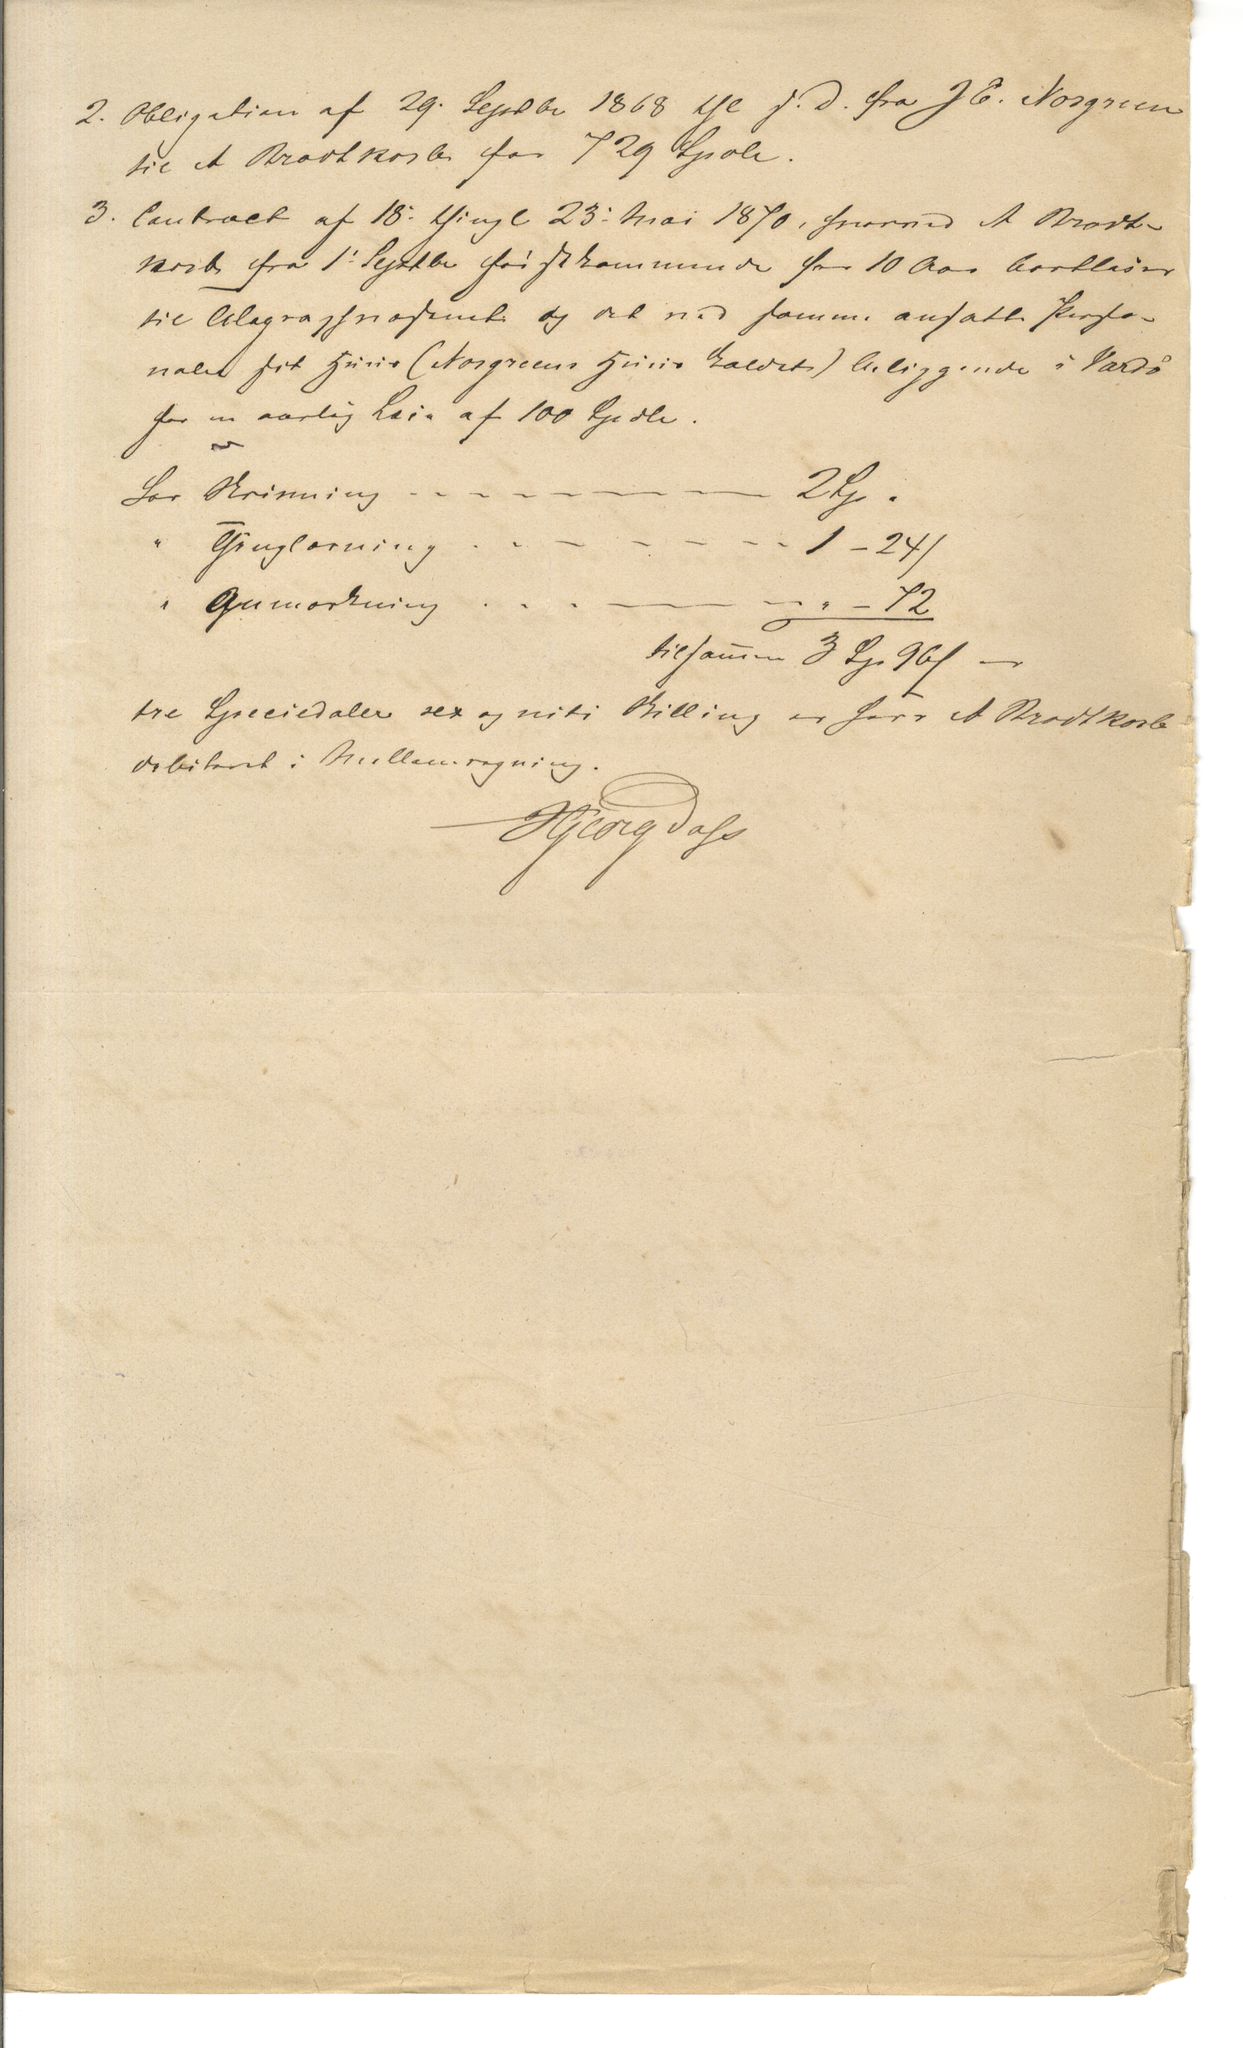 2. Obligation af 29. Septbr 1868 thgl s. d. fra J E. Norgreen
til A Brodtkorb for 729 Spdlr.
3. Contract af 18. thingl 23. Mai 1870, hvorved A Brodt-
korb fra 1. Septbr førstkommende for 10 Aar bortleier
til Telegraphvæsenet og det ved samme ansatte Perso-
nale sit Huus (Norgreens Huus kaldet) beliggende i Vardö
for en aarlig Leie af 100 Spdlr.
For Skrivning 2 Sp. "
" Thinglæsning 1 - 24 s
" Anmærkning " - 72
tilsammen 3 Sp 96 s er
tre Speciedaler sex og niti Skilling er Herr A Brodtkorb
debiteret i Mellemregning.